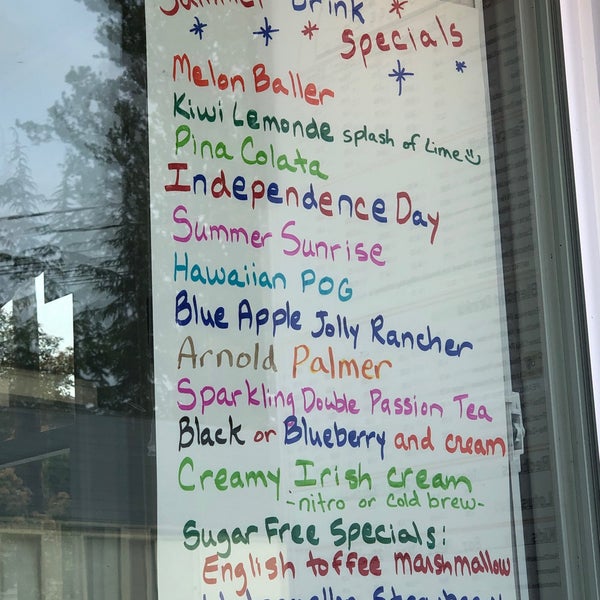 Summer Drink
Specials
Melon Baller
Kiwi Lemonde splash of Lime
Pina Colata
Independence Day
Summer Sunrise
Hawaiian POG
Blue Apple Jolly Rancher
Arnold Palmer
Sparkling Double Passion Tea
Black or Blueberry and cream
Creamy Irish cream
-nitro or cold brew-
Sugar Free Specials:
English toffee marshmallow